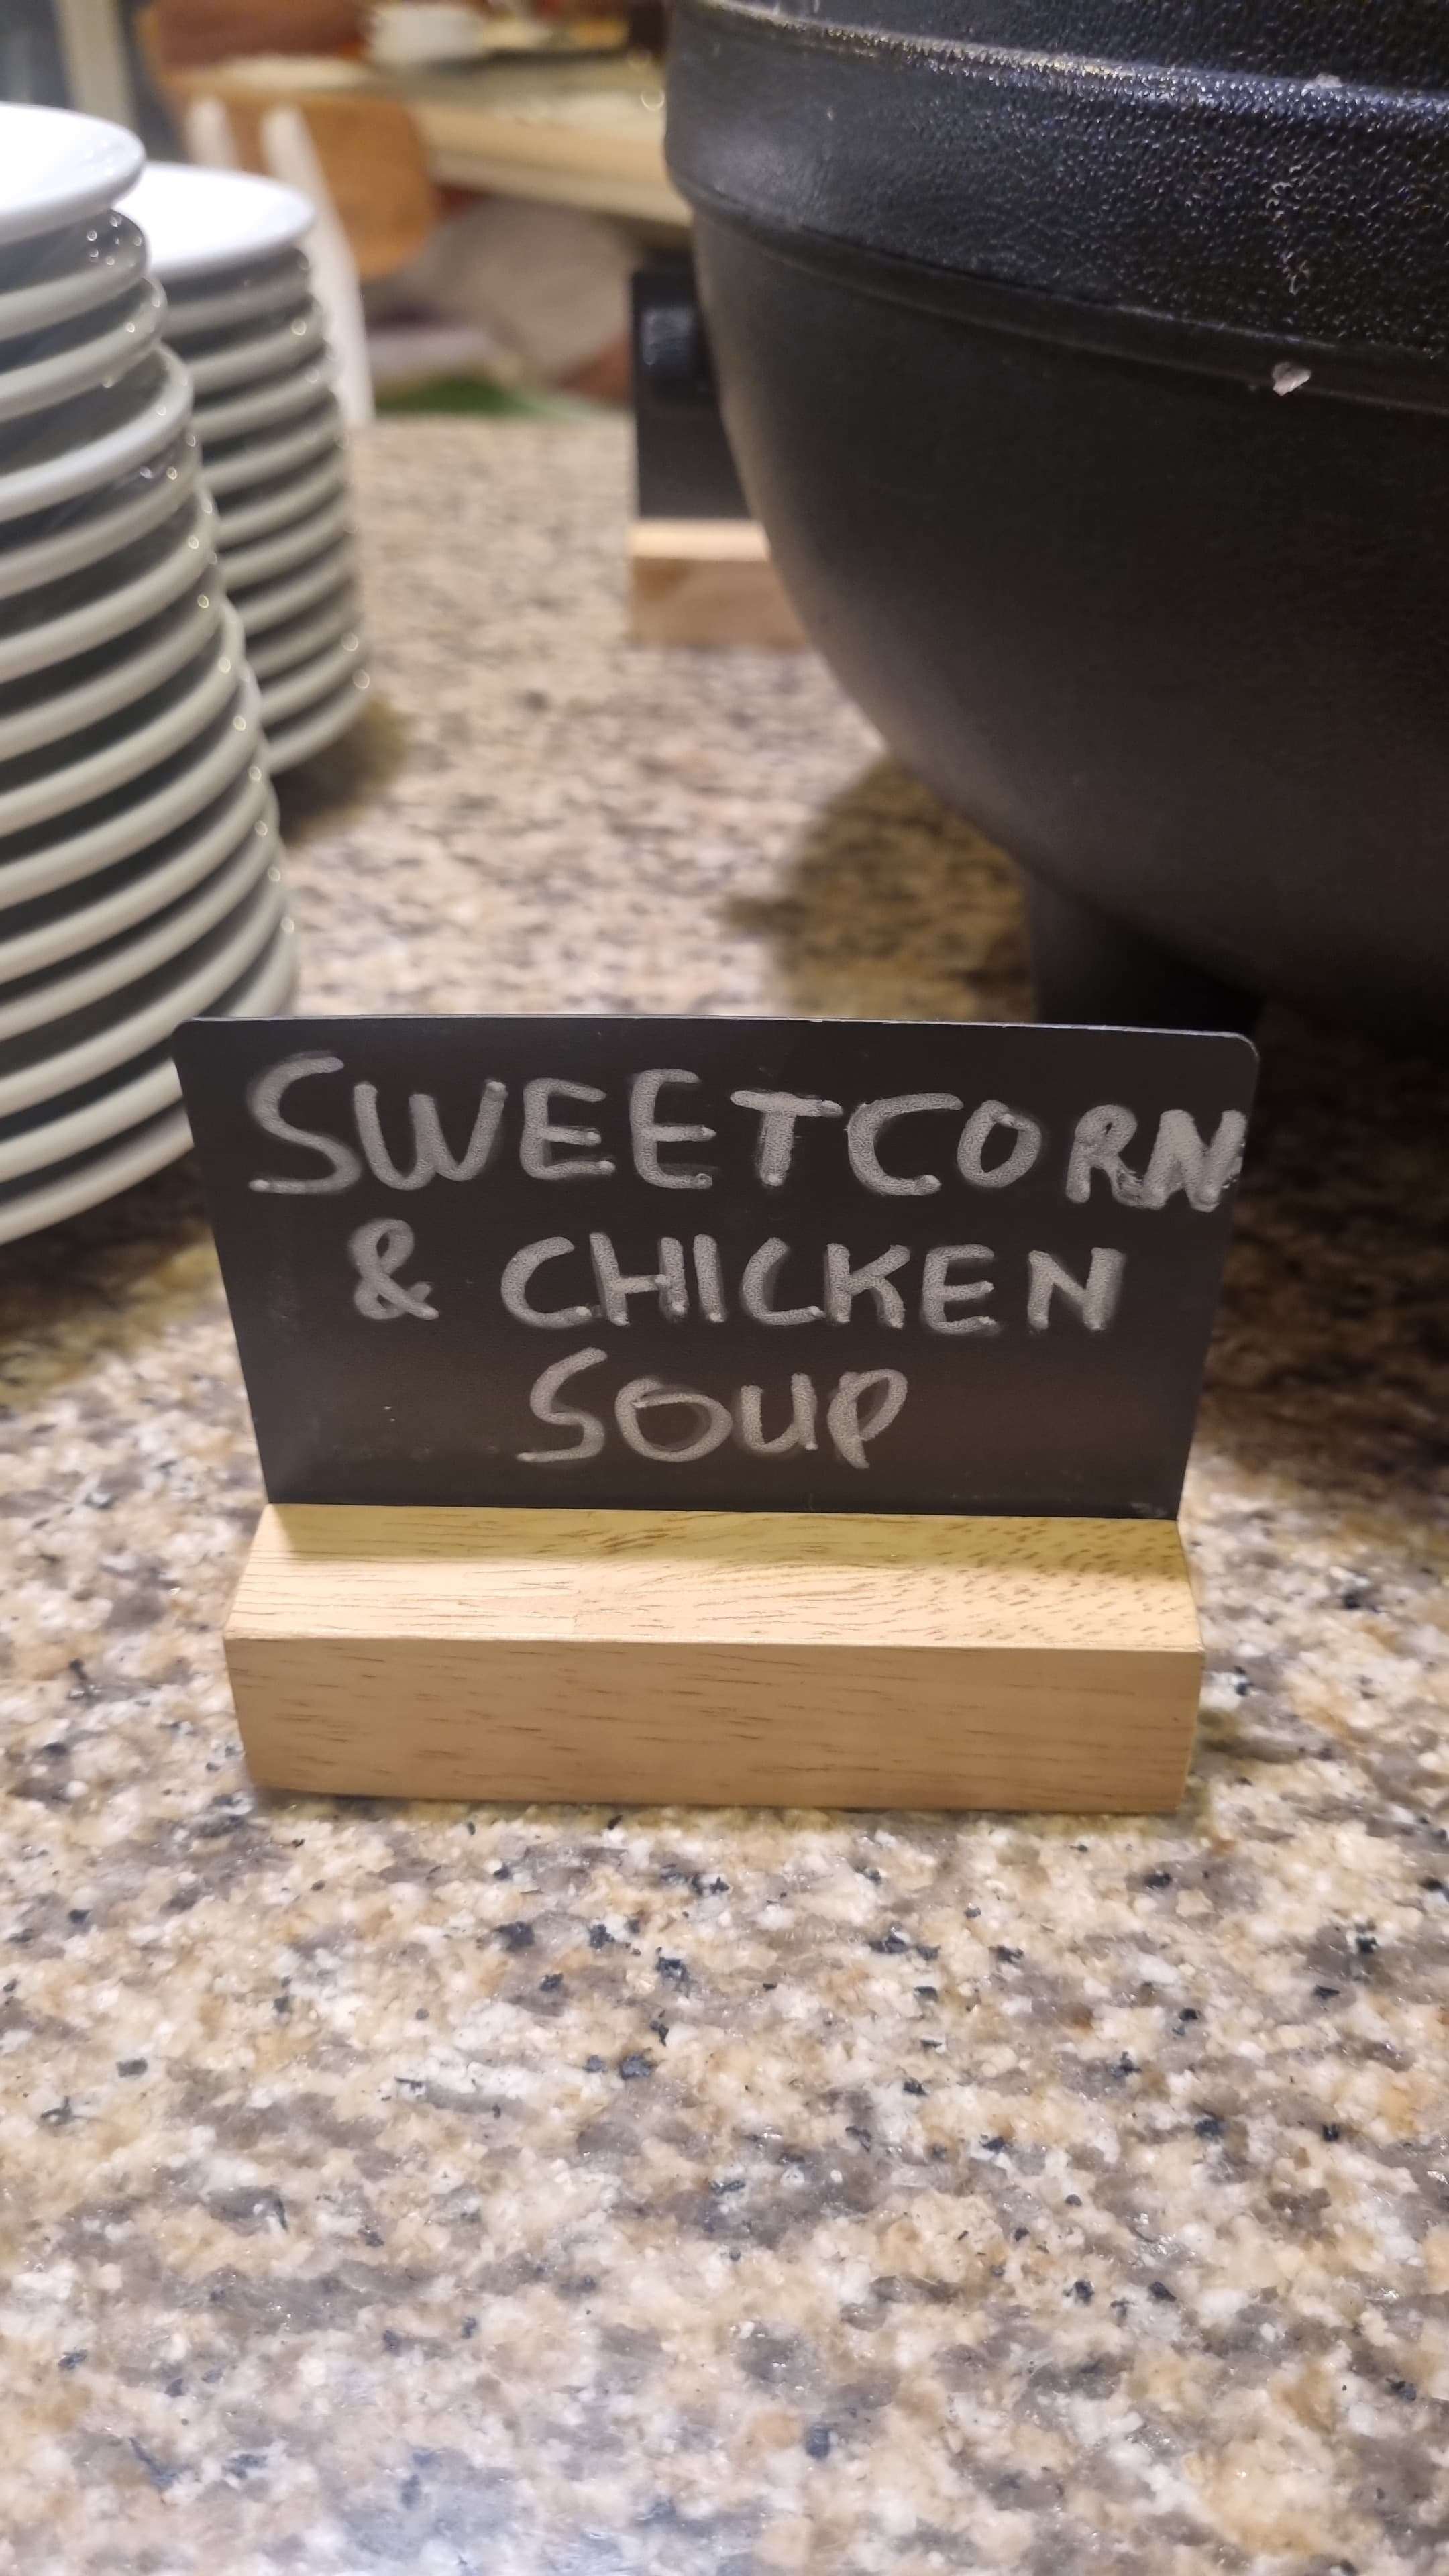 SWEETCORN
& CHICKEN
SOUP